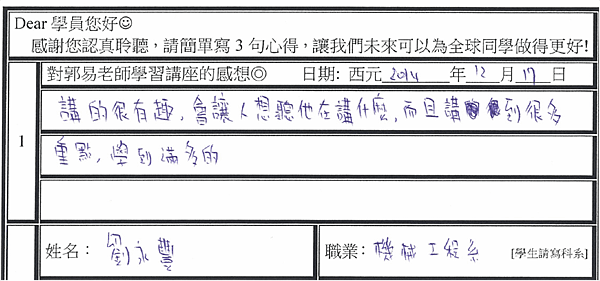 Dear 學員您好☺
感謝您認真聆聽，請簡單寫 3 句心得，讓我們未來可以為全球同學做得更好!
對郭易老師學習講座的感想◎ 日期: 西元 2014 年 12 月 17 日
1
講的很有趣，會讓人想聽他在講什麼，而且講到很多
重點，學到滿多的
姓名： 劉永豐 職業： 機械工程系 [學生請寫科系]